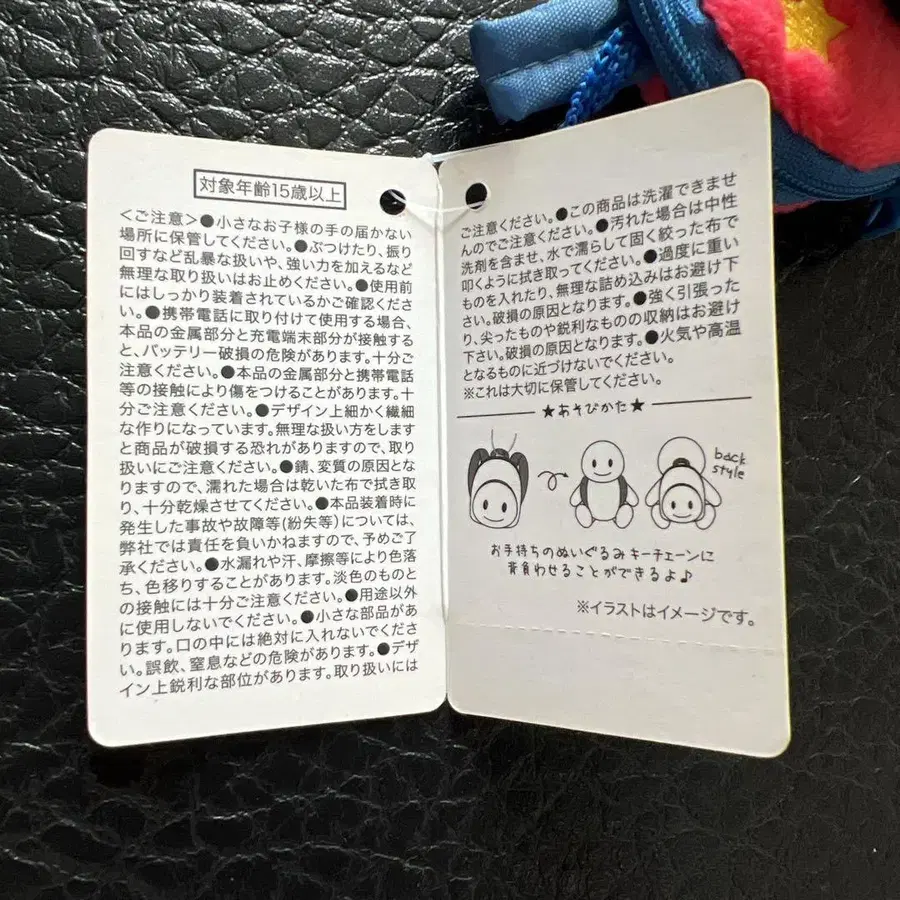 対象年齢15歳以上
＜ご注意＞●小さなお子様の手の届かない
場所に保管してください。●ぶつけたり、振り
回すなど乱暴な扱いや、強い力を加えるなど
無理な取り扱いはお止めください。●使用前
にはしっかり装着されているかご確認くださ
い。●携帯電話に取り付けて使用する場合、
本品の金属部分と充電端末部分が接触する
と、バッテリー破損の危険があります。十分ご
注意ください。●本品の金属部分と携帯電話
等の接触により傷をつけることがあります。十
分ご注意ください。●デザイン上細かく繊細
な作りになっています。無理な扱い方をします
と商品が破損する恐れがありますので、取り
扱いにご注意ください。●錆、変質の原因とな
りますので、濡れた場合は乾いた布で拭き取
り、十分乾燥させてください。●本品装着時に
発生した事故や故障等(紛失等)については、
弊社では責任を負いかねますので、予めご了
承ください。●水漏れや汗、摩擦等により色落
ち、色移りすることがあります。淡色のものと
の接触には十分ご注意ください。●用途以外
に使用しないでください。●小さな部品があ
ります。口の中には絶対に入れないでくださ
い。誤飲、窒息などの危険があります。●デザ
イン上鋭利な部位があります。取り扱いには
ご注意ください。●この商品は洗濯できませ
んのでご注意ください。●汚れた場合は中性
洗剤を含ませ、水で濡らして固く絞った布で
叩くように拭き取ってください。●過度に重い
ものを入れたり、無理な詰め込みはお避け下
さい。破損の原因となります。●強く引張った
り、尖ったものや鋭利なものの収納はお避け
下さい。破損の原因となります。●火気や高温
となるものに近づけないでください。
※これは大切に保管してください。
★あそびかた★
back
style
お手持ちのぬいぐるみキーチェーンに
背負わせることができるよ♪
※イラストはイメージです。